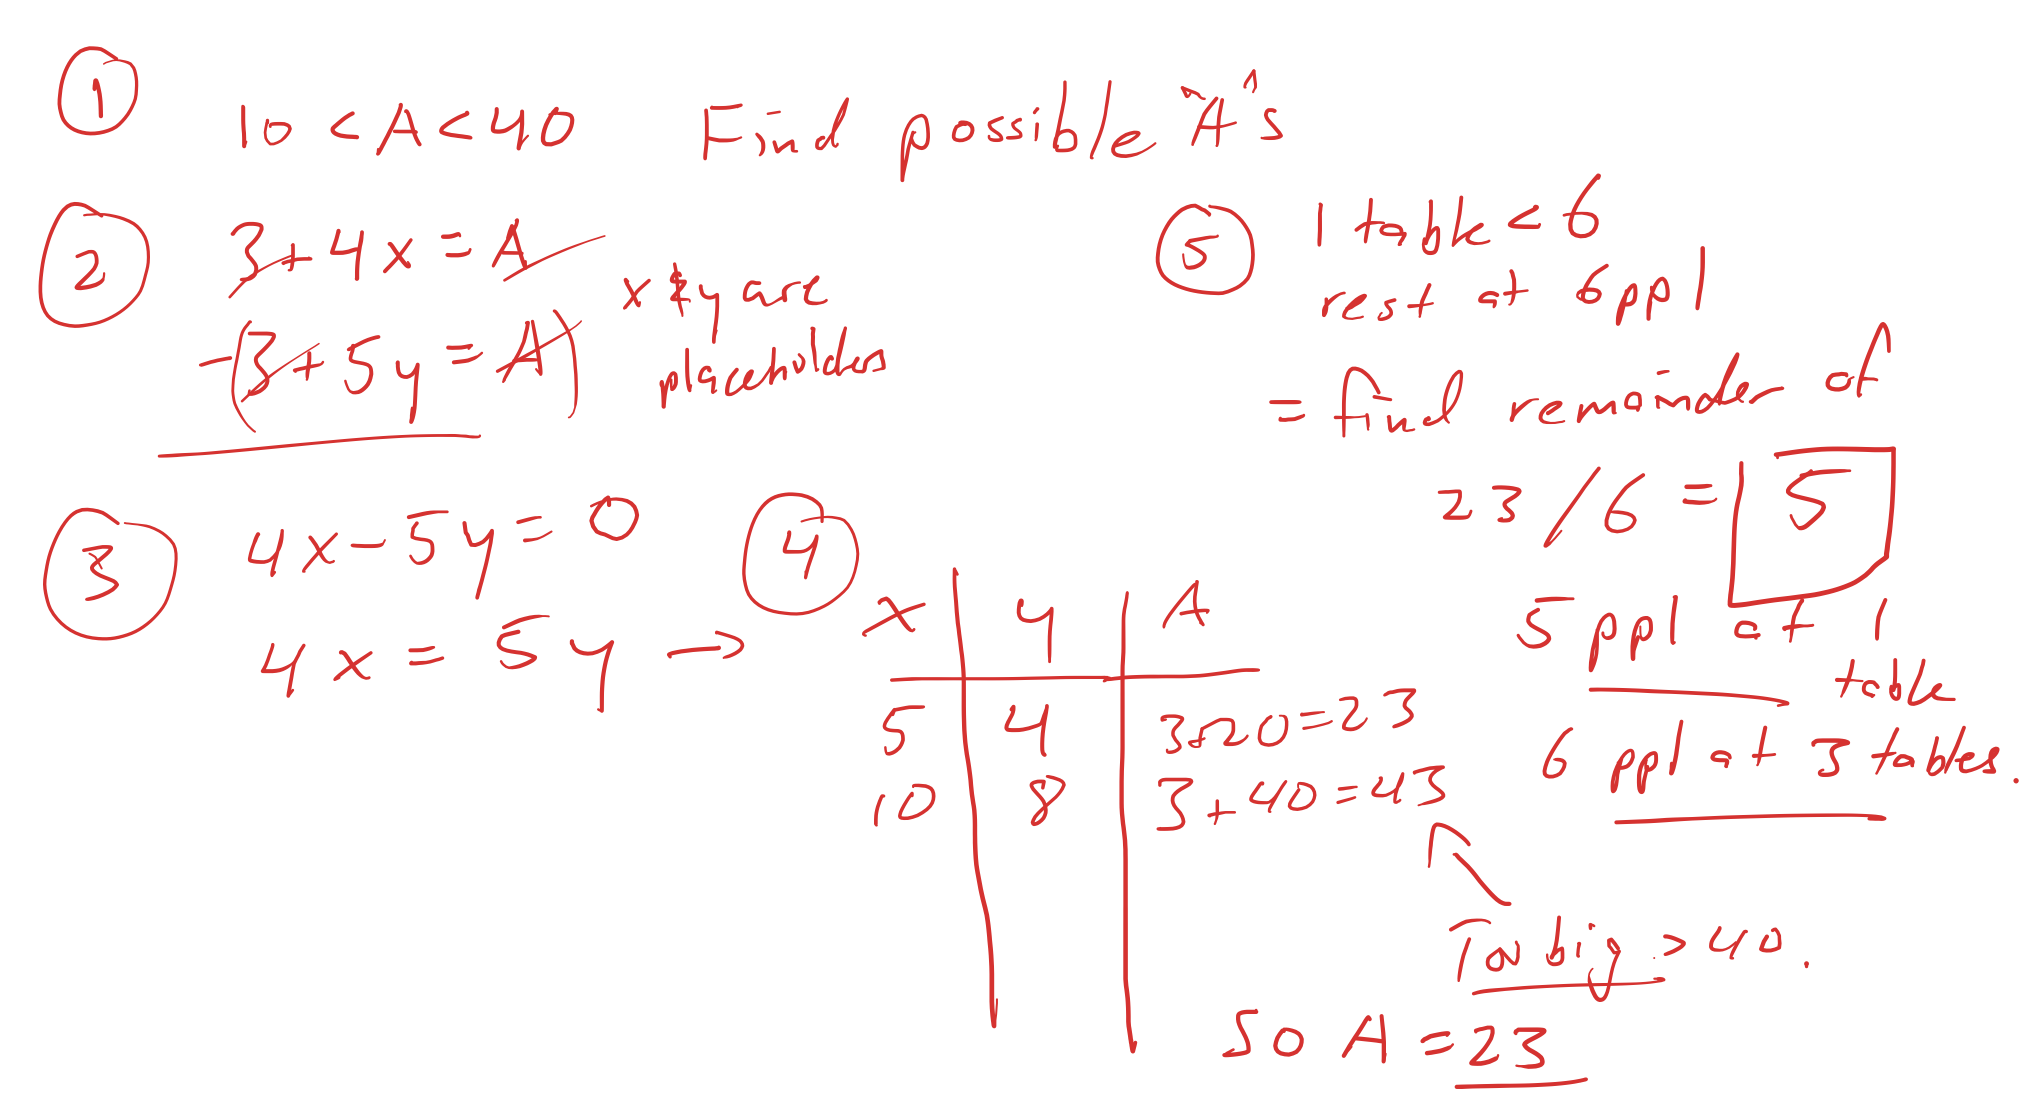 1
10 < A < 40 Find possible "A"s
2
3 + 4x = A
-(3 + 5y = A)
x & y are
placeholders
3
4x - 5y = 0
4x = 5y →
4
x y A
5 4 3+20=23
10 8 3+40=43
Too big > 40.
So A = 23
5
1 table < 6
rest at 6 ppl
= find remainder of
23 / 6 = 5
5 ppl at 1
table
6 ppl at 3 tables.